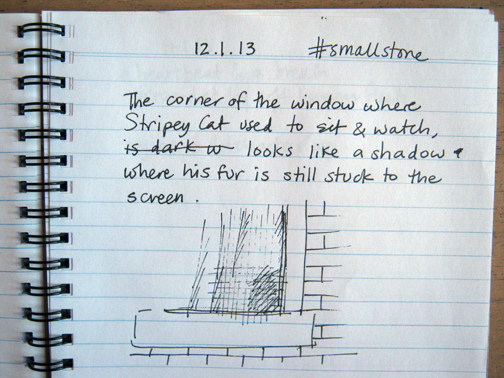 12.1.13 #smallstone
The corner of the window where
Stripey Cat used to sit & watch,
is dark w looks like a shadow
where his fur is still stuck to the
screen.